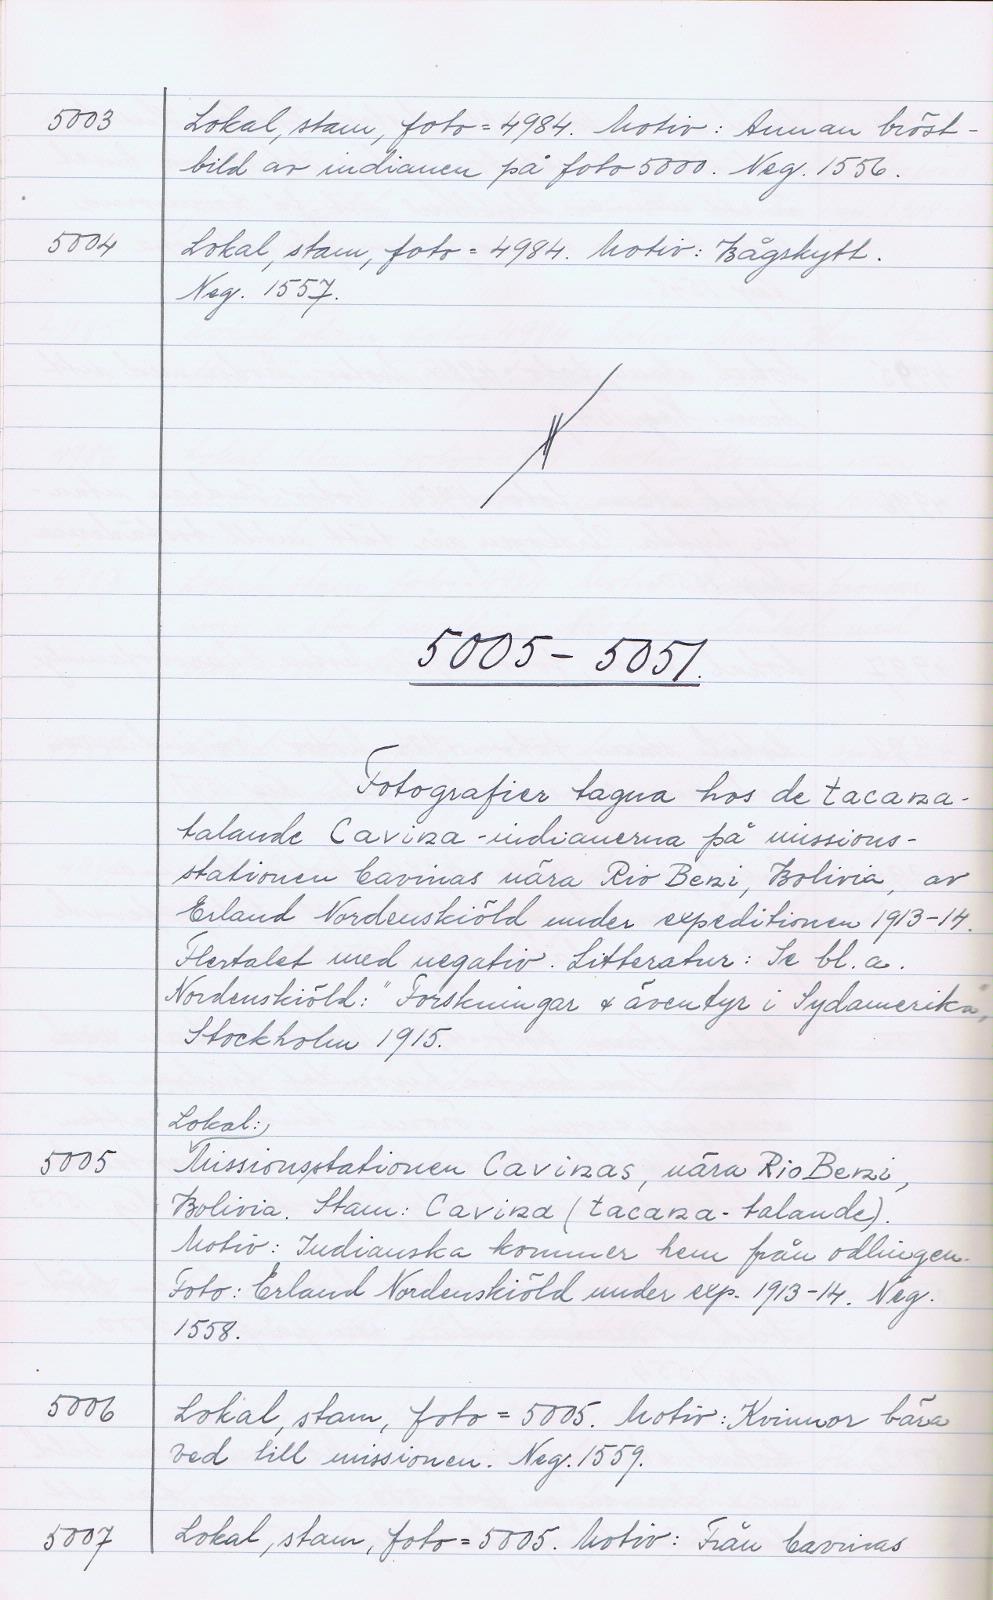 5003 Lokal, stam, foto = 4984. Motiv: Annan bröst-
bild av indianen på foto 5000. Neg. 1556.
5004 Lokal, stam, foto = 4984. Motiv: Bågskytt.
Neg. 1557.
5005 - 5051.
Fotografier tagna hos de tacana-
talande Cavina-indianerna på missions-
stationen Cavinas nära Rio Beni, Bolivia, av
Erland Nordenskiöld under expeditionen 1913-14.
Flertalet med negativ. Litteratur: Se bl.a.
Nordenskiöld: "Forskningar & äventyr i Sydamerika",
Stockholm 1915.
Lokal:
5005 Missionsstationen Cavinas, nära Rio Beni,
Bolivia. Stam: Cavina (tacana-talande).
Motiv: Indianska kommer hem från odlingen.
Foto: Erland Nordenskiöld under exp. 1913-14. Neg.
1558.
5006 Lokal, stam, foto = 5005. Motiv: Kvinnor bära
ved till missionen. Neg. 1559.
5007 Lokal, stam, foto = 5005. Motiv: Från Cavinas